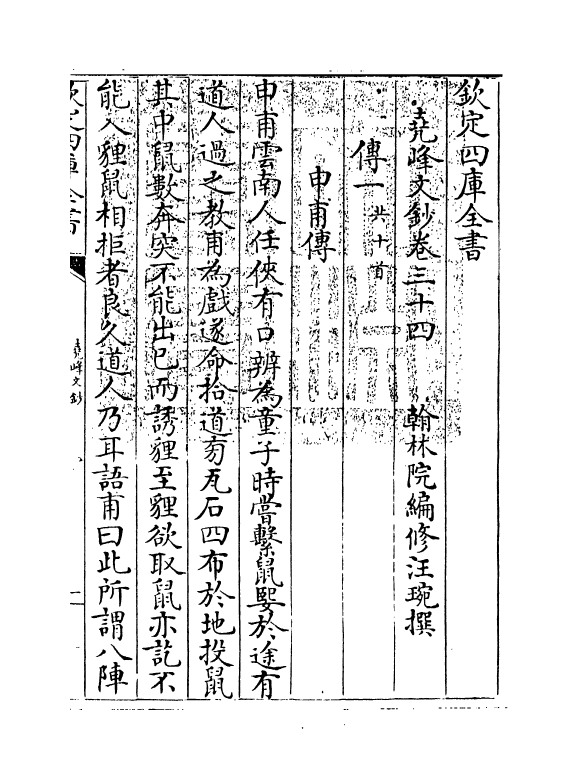 欽定四庫全書
堯峰文鈔卷三十四　翰林院編修汪琬撰
傳一共十首
申甫傳
申甫雲南人任俠有口辨為童子時嘗繫鼠嬰於途有
道人過之教甫為戲遂命拾道旁瓦石四布於地投鼠
其中鼠數奔突不能出已而誘貍至貍欲取鼠亦訖不
能入貍鼠相拒者良久道人乃耳語甫曰此所謂八陣
欽定四庫全書
堯峰文鈔
一